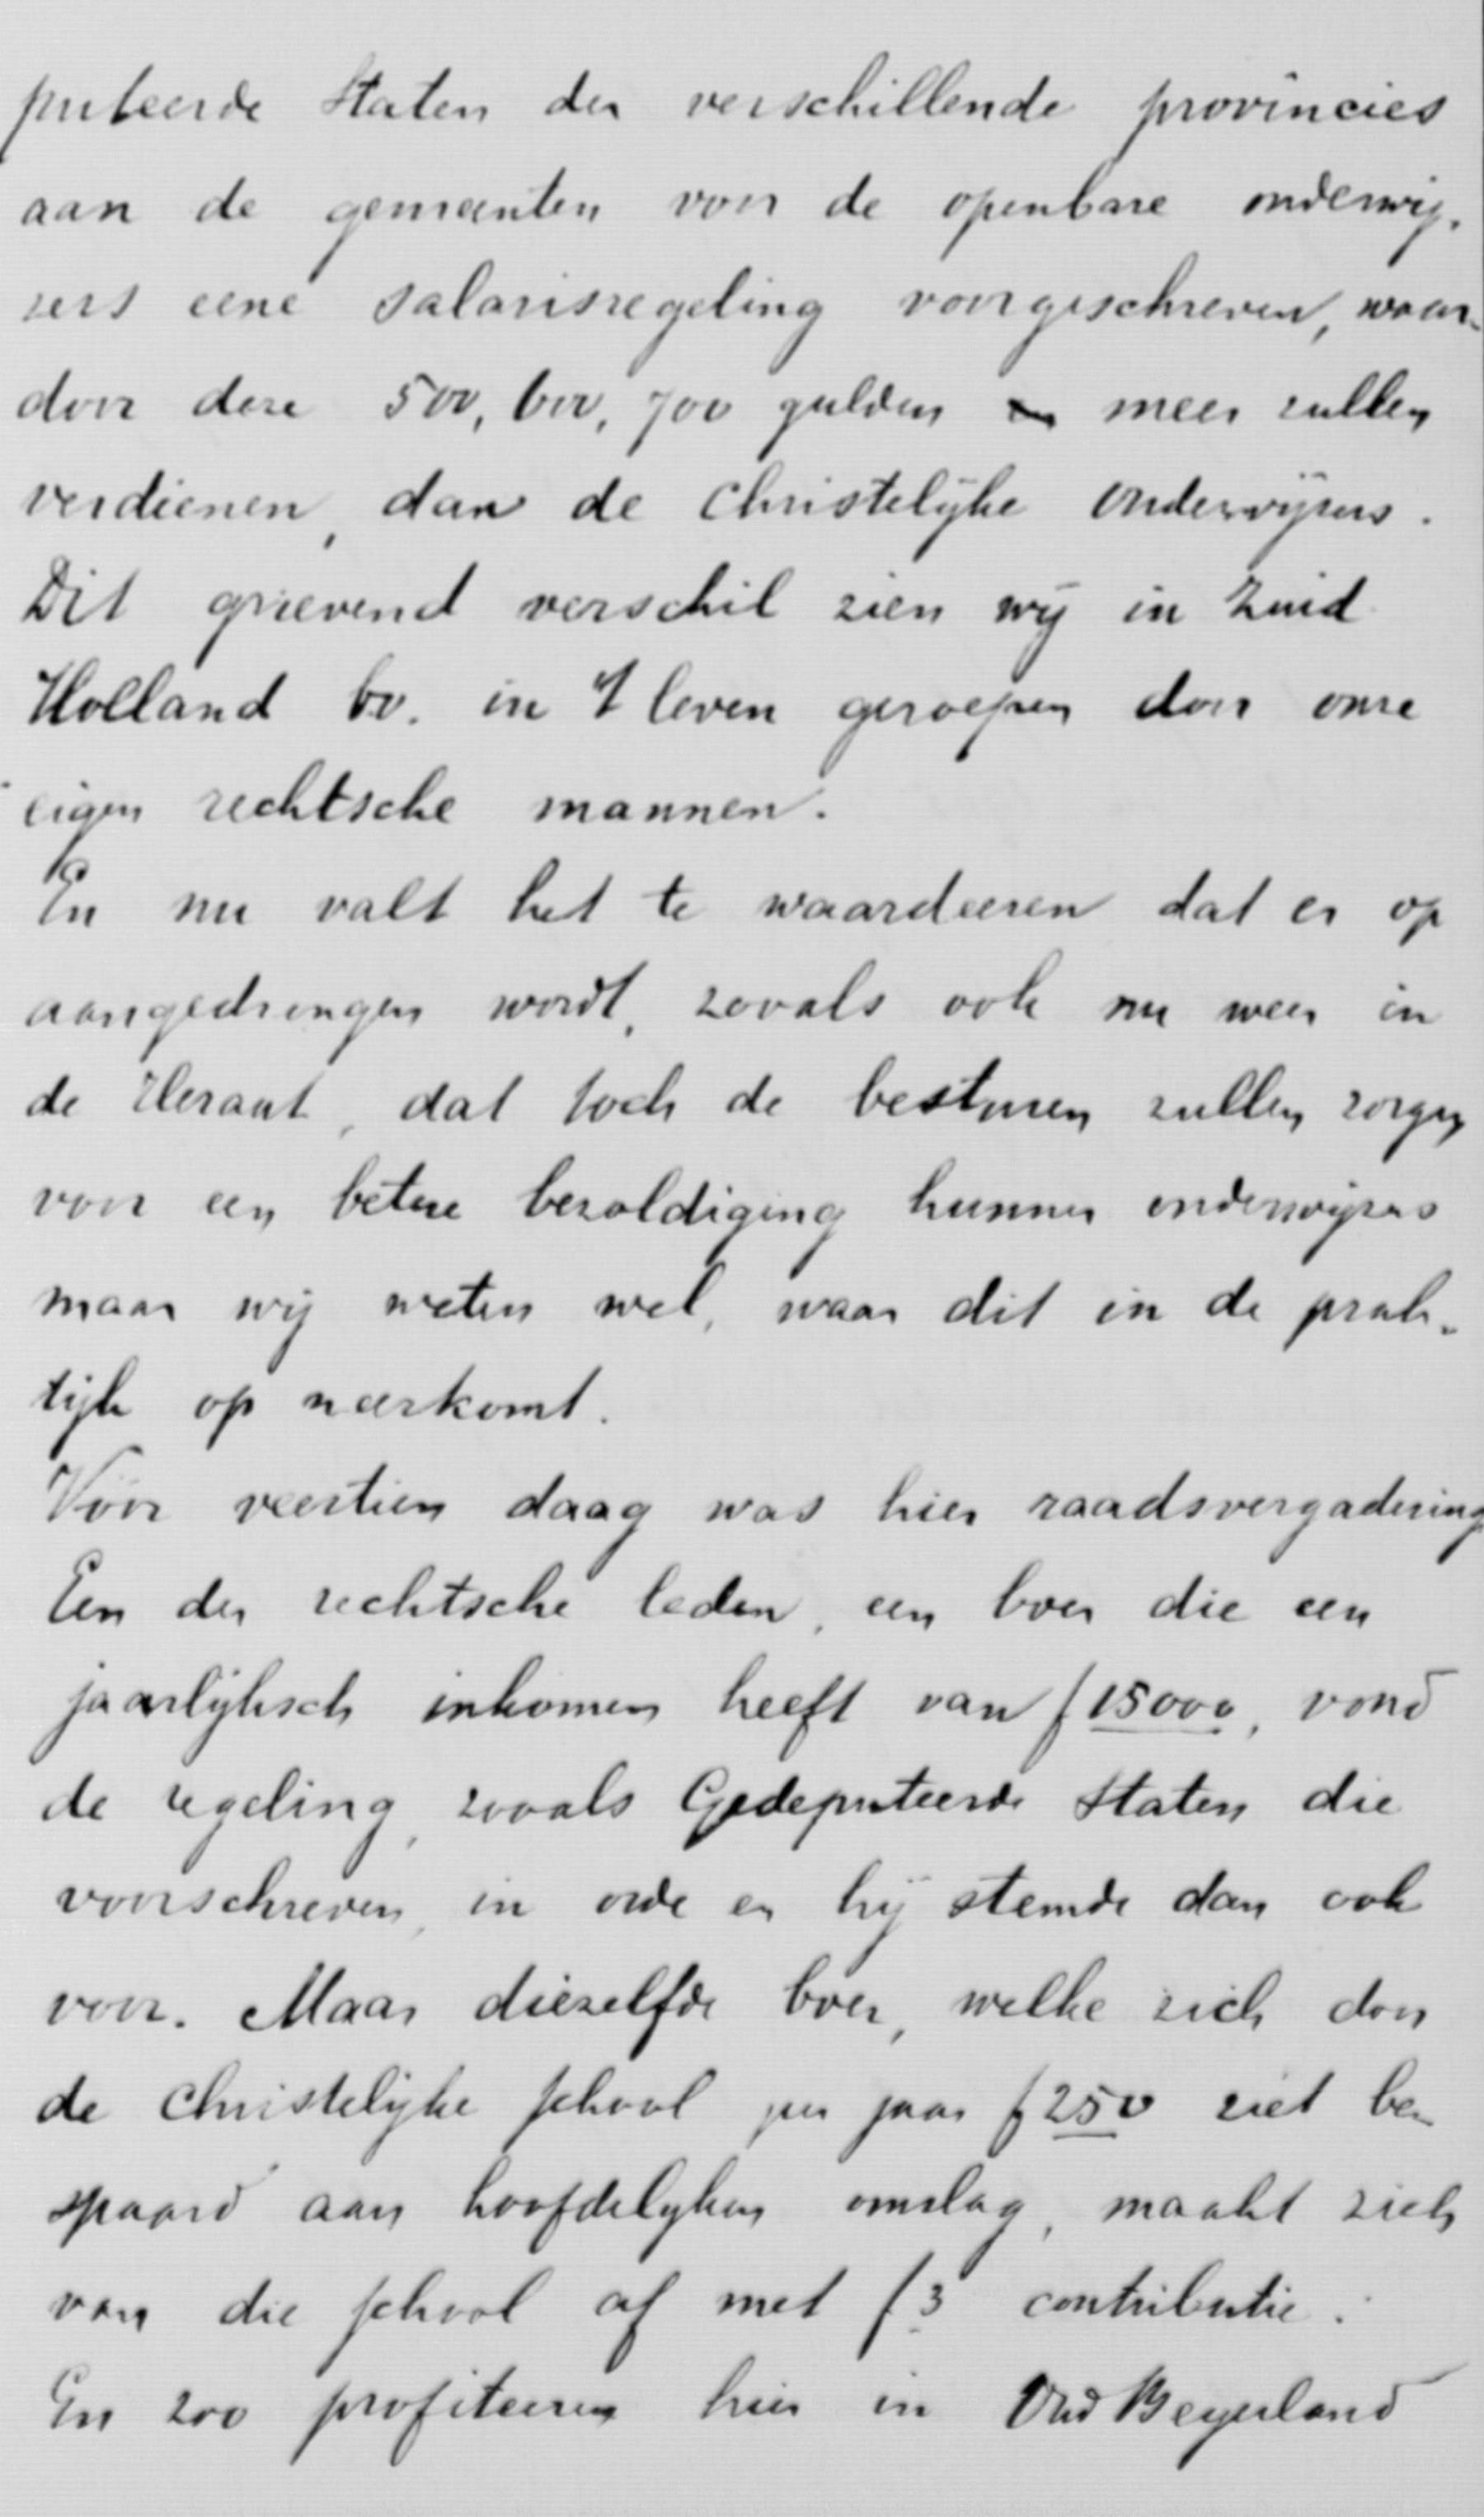 puteerde Staten der verschillende provincies
aan de gemeenten voor de openbare onderwij-
zers eene salarisregeling voorgeschreven, waar-
door deze 500, 600, 700 gulden meer zullen
verdienen, dan de Christelijke onderwijzers.
Dit grievend verschil zien wij in Zuid
Holland bv. in 't leven geroepen door onze
eigen rechtsche mannen.
En nu valt het te waardeeren dat er op
aangedrongen wordt, zooals ook nu weer in
de Heraut, dat toch de besturen zullen zorgen
voor een betere bezoldiging hunner onderwijzers
maar wij weten wel, waar dit in de prak-
tijk op neerkomt.
Vóór veertien daag was hier raadsvergadering
Een der rechtsche leden, een boer die een
jaarlijksch inkomen heeft van f 15000, vond
de regeling, zooals Gedeputeerde Staten die
voorschreven, in orde en hij stemde dan ook
voor. Maar diezelfde boer, welke zich door
de Christelijke school per jaar f 250 ziet be-
spaard aan hoofdelijken omslag, maakt zich
van die school af met f 3 contributie.
En zoo profiteeren hier in Oud Beyerland